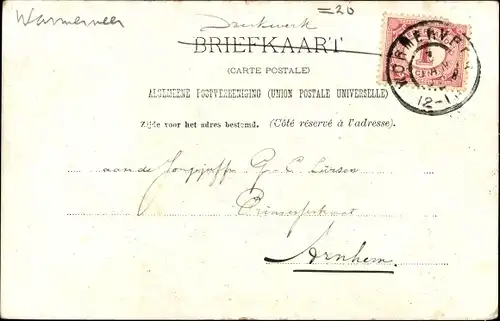 Wormerveer
=20
Drukwerk
BRIEFKAART
(CARTE POSTALE)
ALGEMEENE POSTVEREENIGING (UNION POSTALE UNIVERSELLE)
Zijde voor het adres bestemd. (Côté réservé à l'adresse).
WORMERVEER
12-1
aan de Jongejuffr. C. Lürsen
Prinsessestraat
Arnhem.